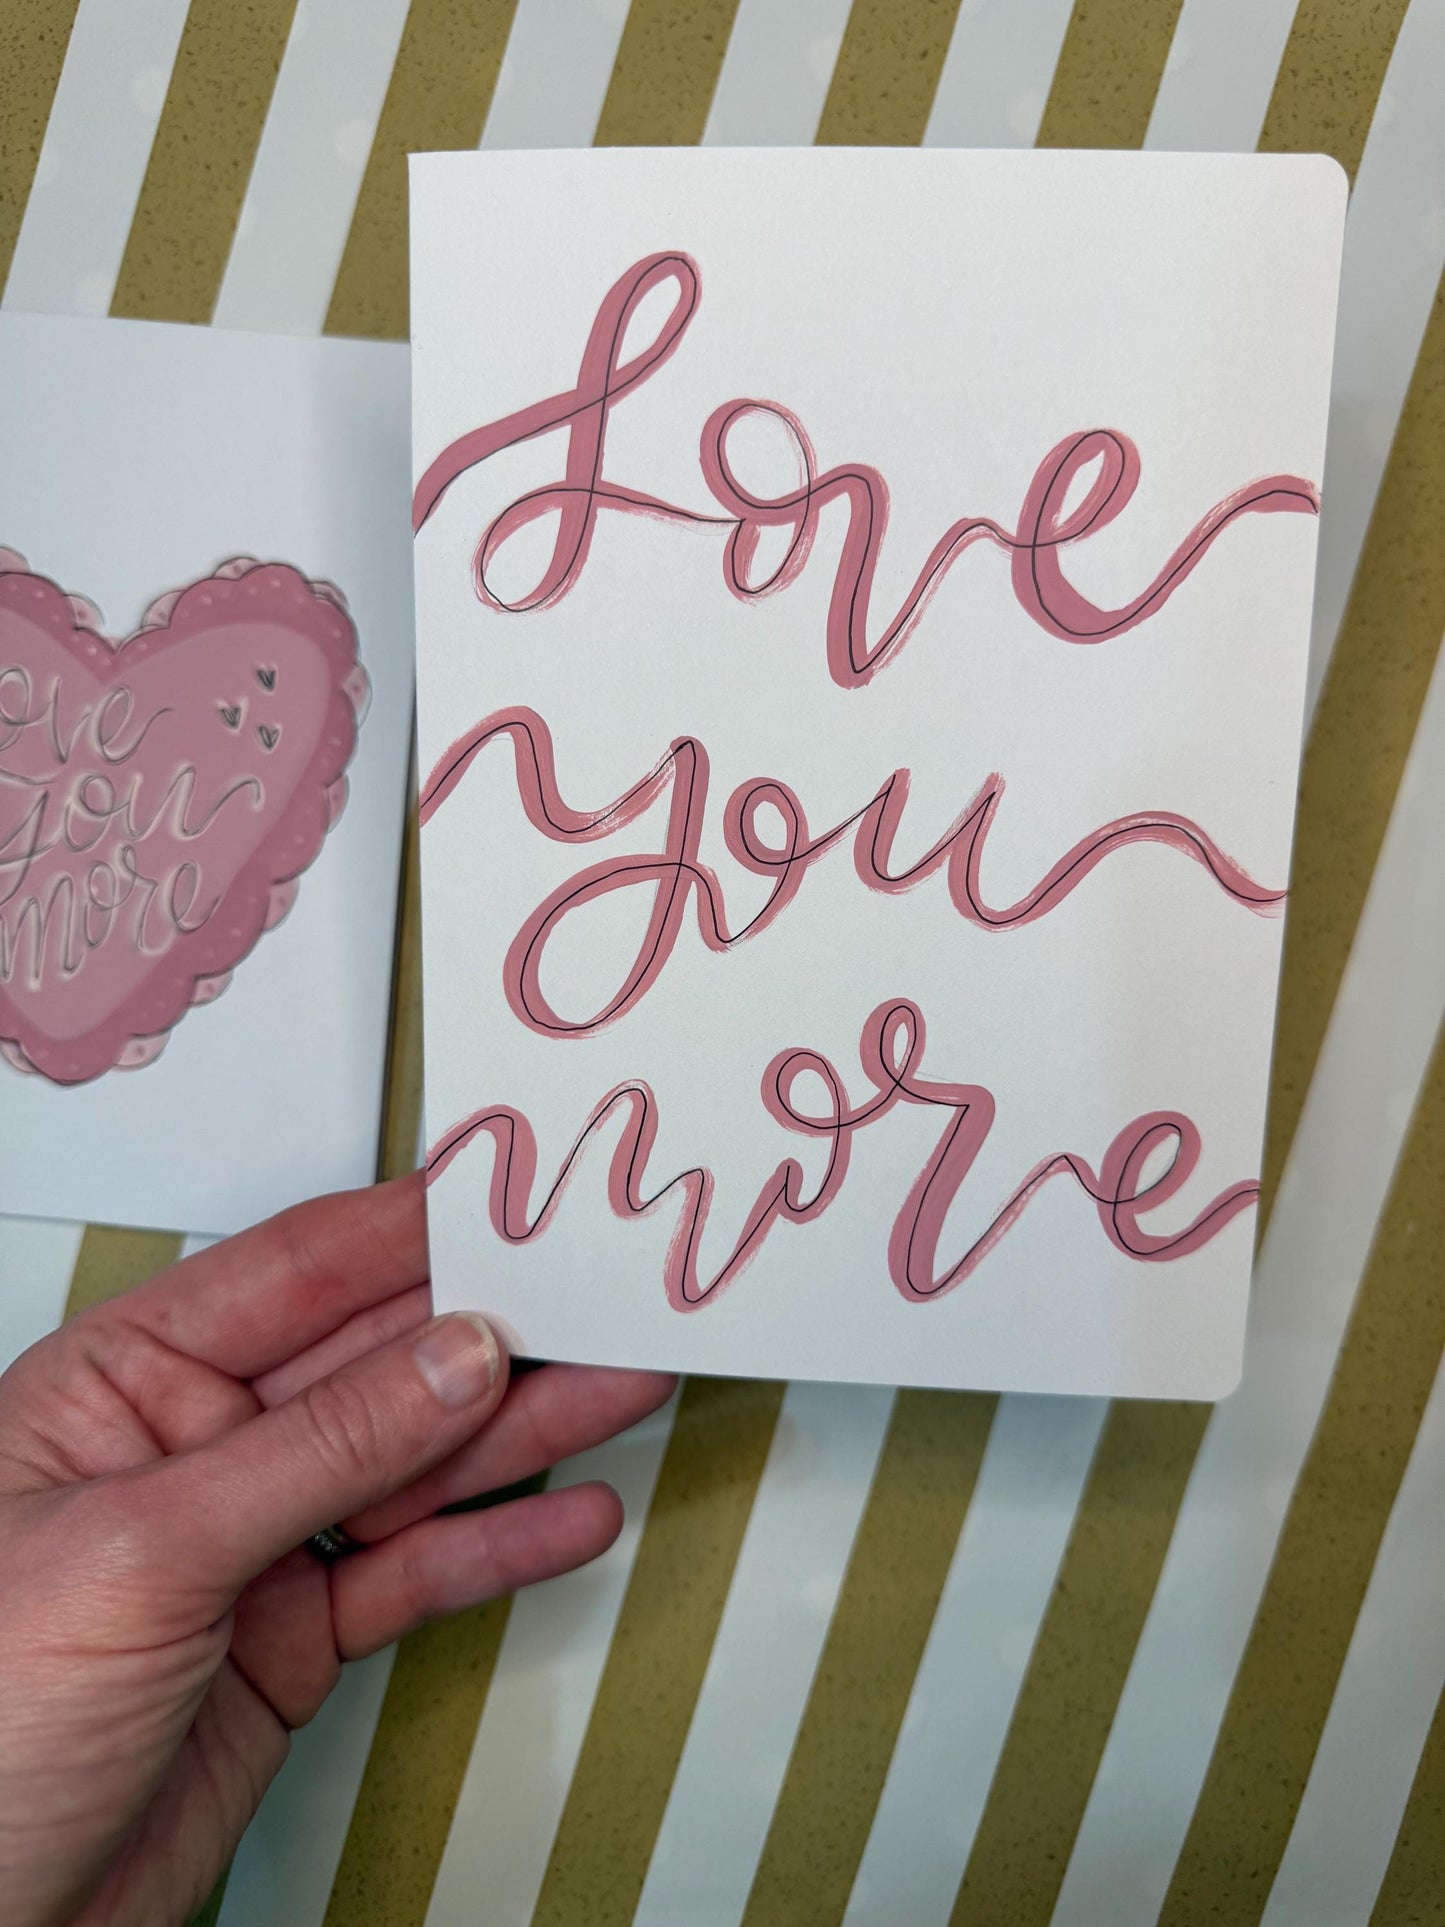 ove
you
more
Love
you
more